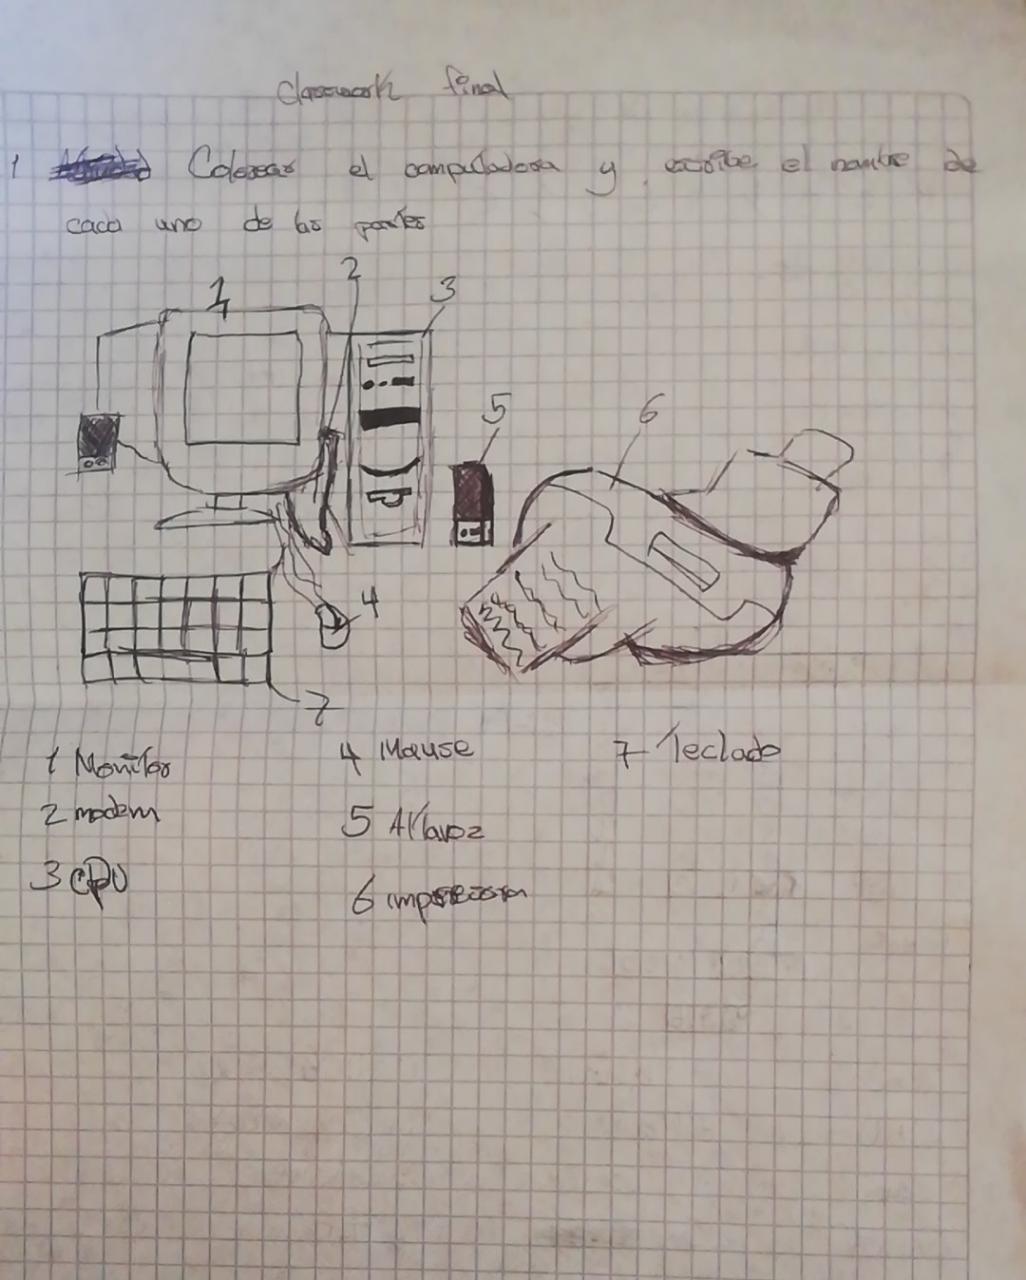 classwork final
1 Colorear el computadora y escribe el nombre de
cada uno de las partes
1
2
3
5
6
4
7
1 Monitor
2 modem
3 CPU
4 Mause
5 Altavoz
6 impresora
7 Teclado